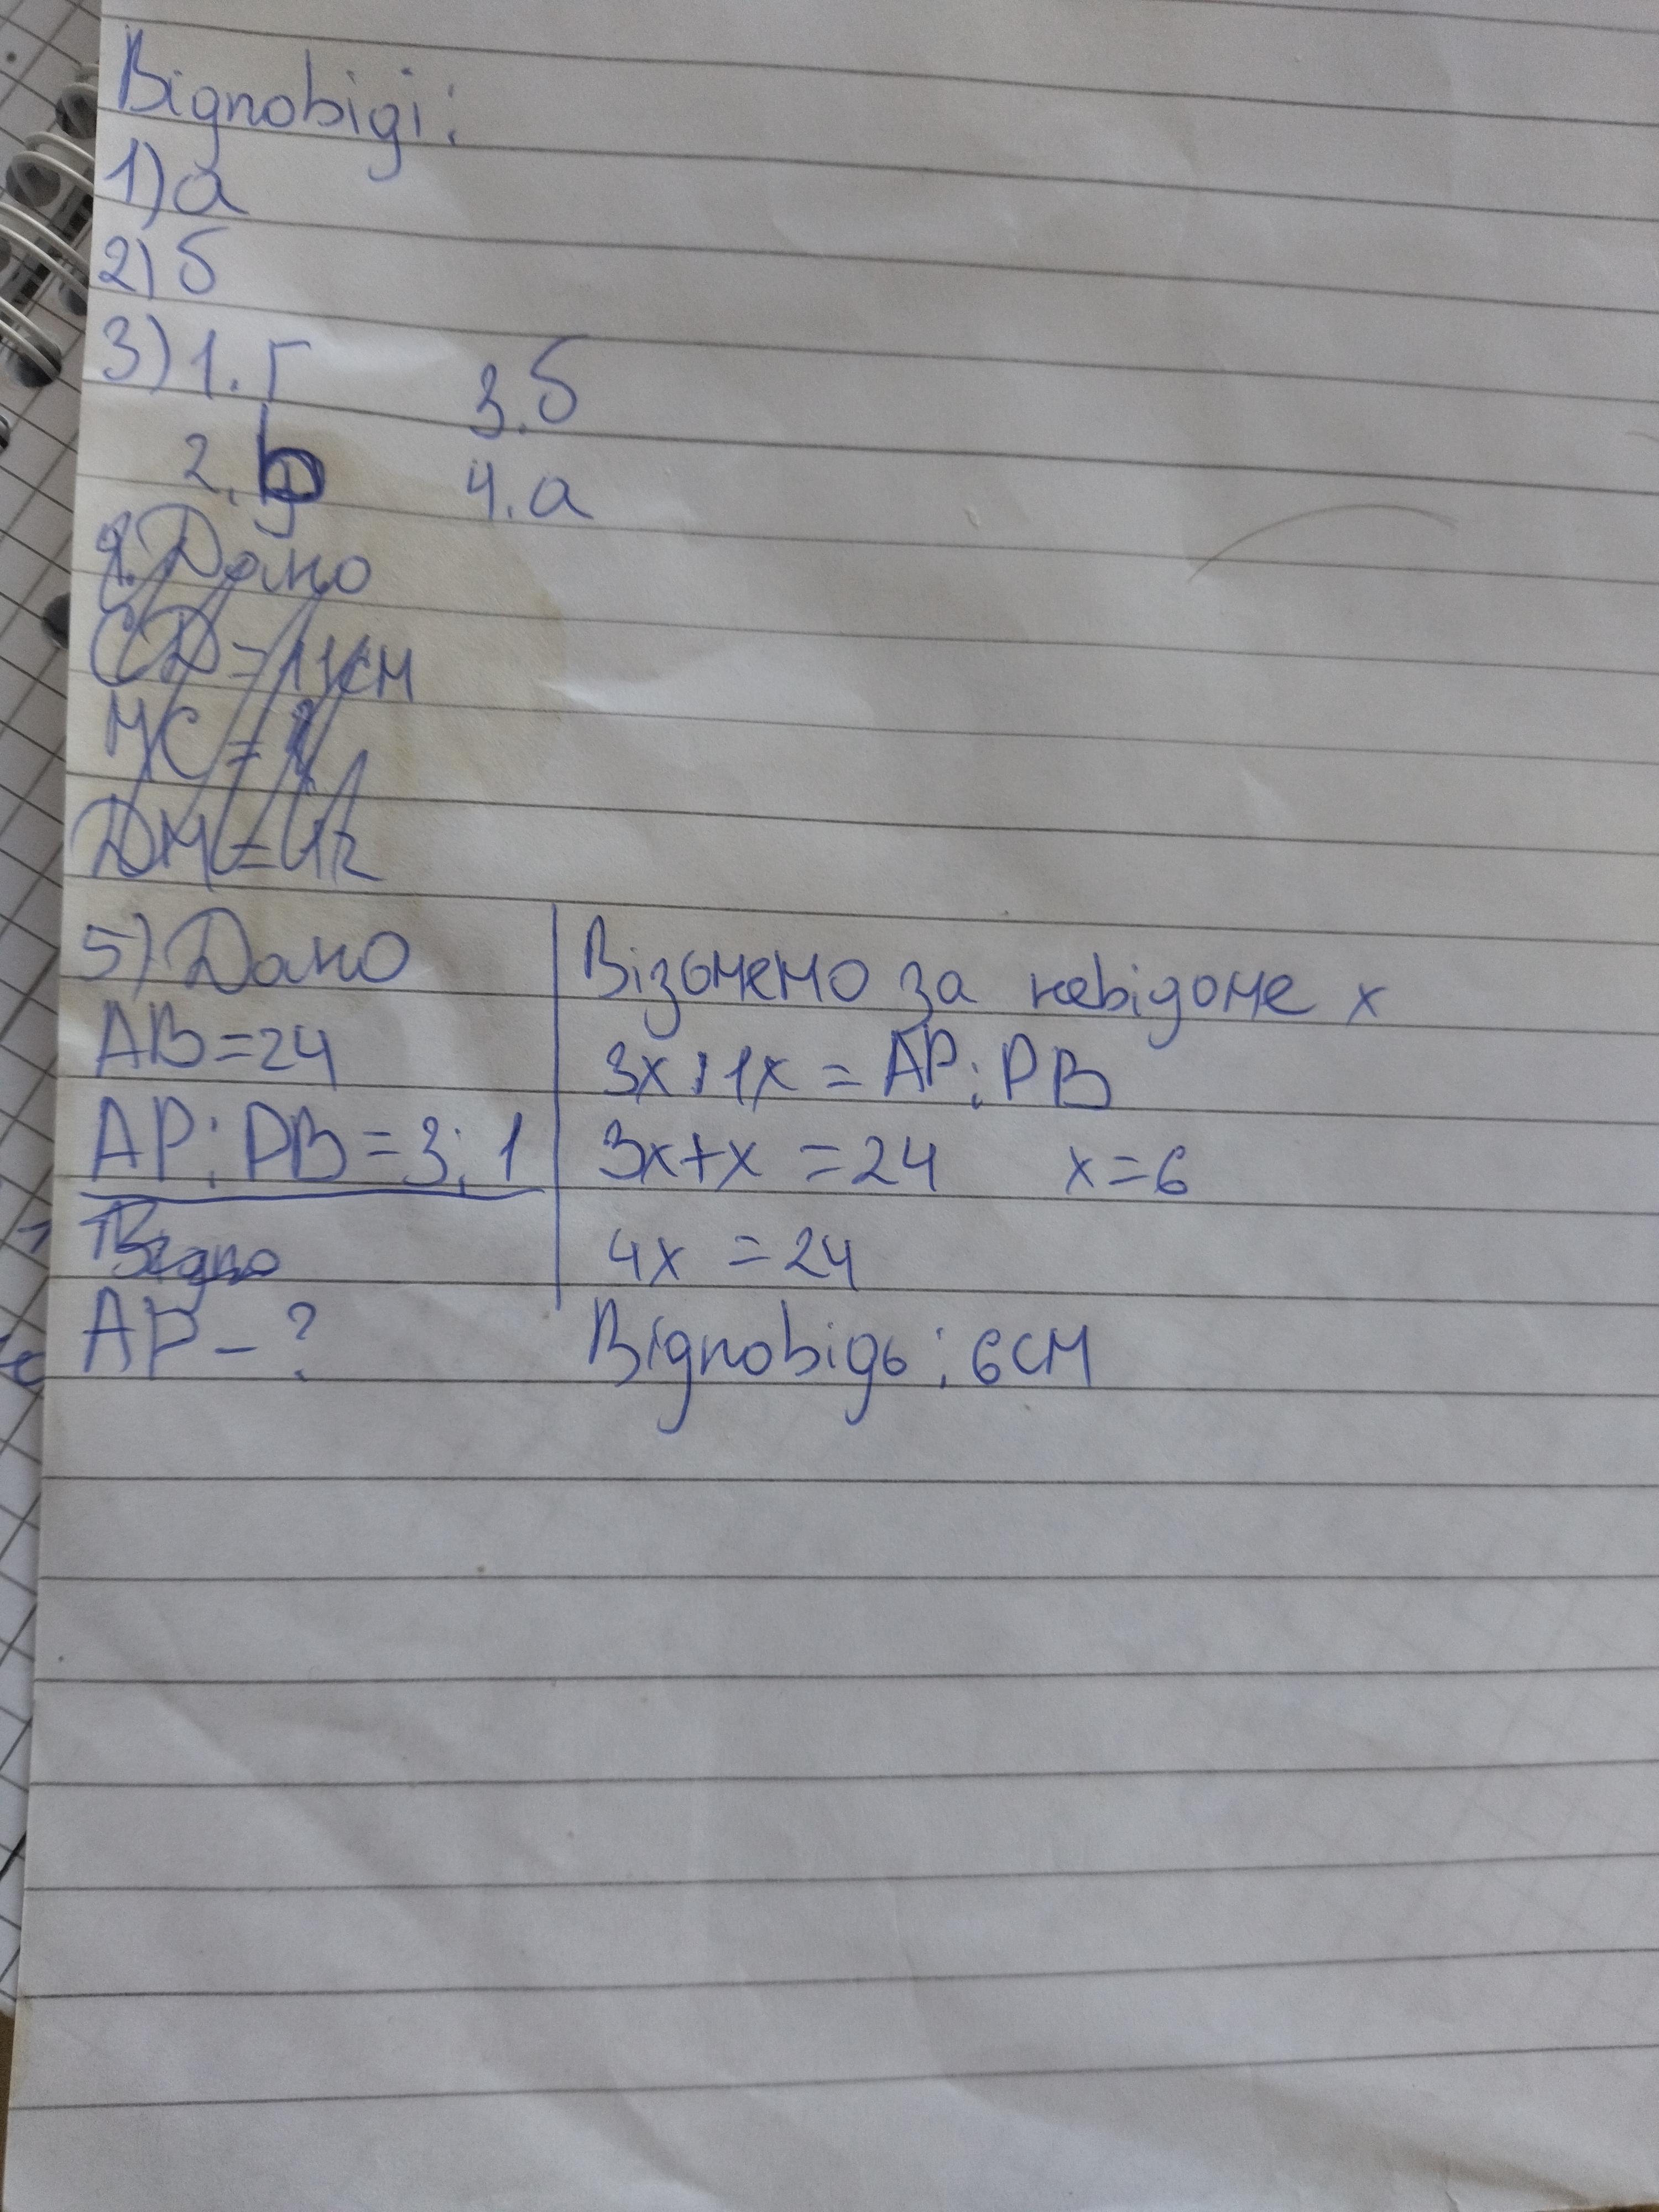 Відповіді:
1) а
2) б
3) 1. Г 3. б
2. 4. а
Дано
CD = 11 см
MC =
DM =
5) Дано
AB = 24
AP : PB = 3 : 1
AP - ?
Візьмемо за невідоме x
3x : 1x = AP : PB
3x + x = 24 x = 6
4x = 24
Відповідь : 6 см